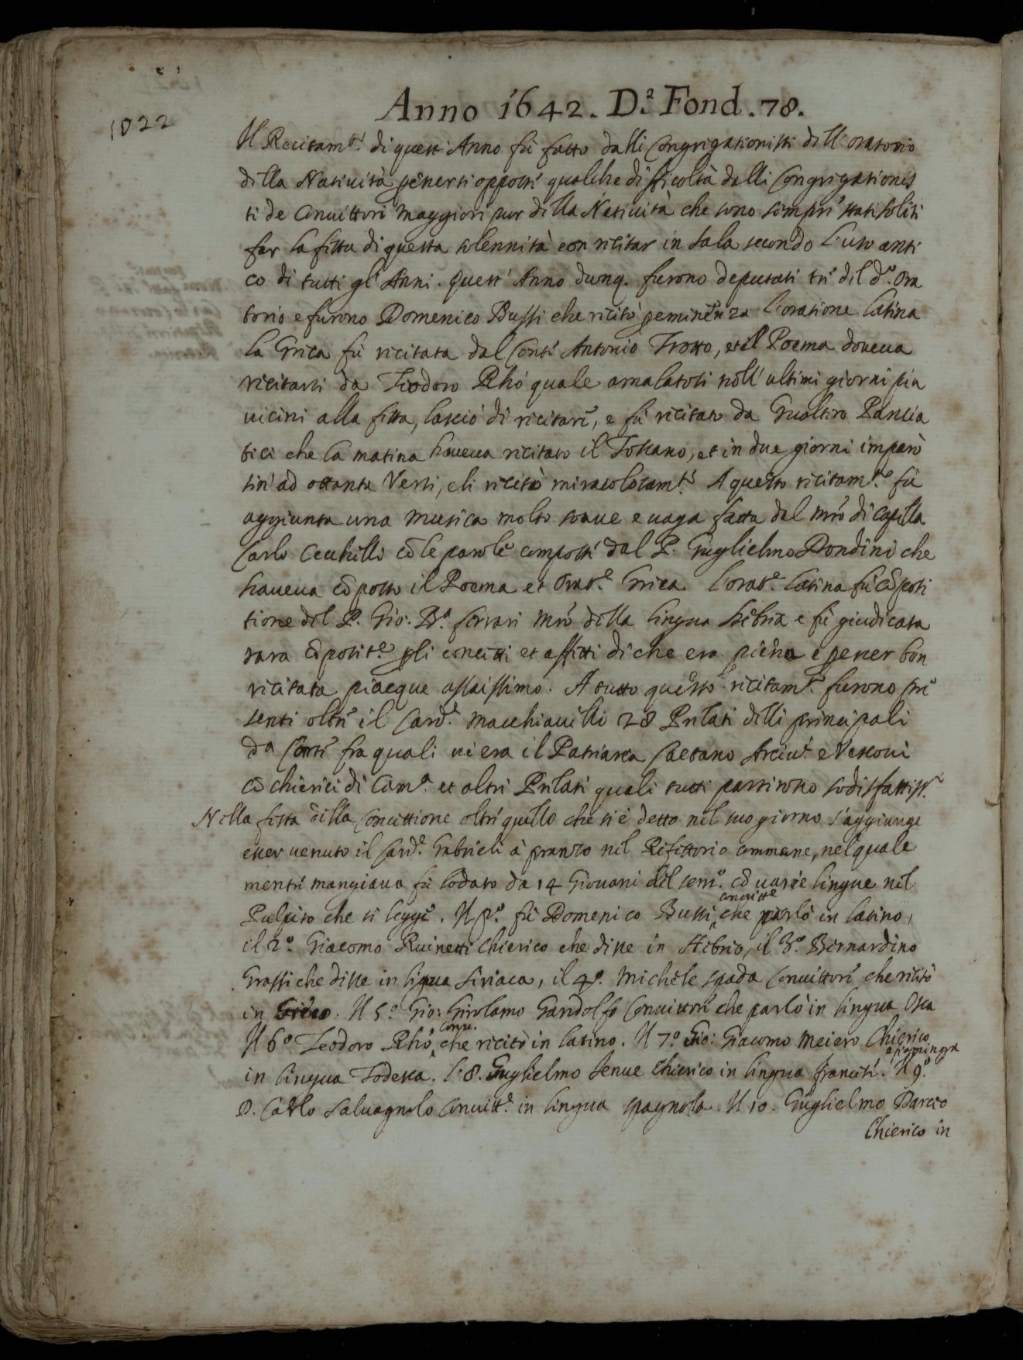 1022
Anno 1642. D.a Fond. 78.
Il Recitam.to di quest'Anno fù fatto dalli Congregationisti dell'oratorio
della Natività p essersi opposti qualche difficoltà dalli Congregationis
ti de Convittori maggiori pur della Natività che sono sempre stati soliti
far la festa di questa solennità con recitar in sala secondo l'uso anti
co di tutti gl'Anni. Quest'Anno dunq. furono deputati tre del d.o Ora
torio e furono Domenico Bussi che recitò l'oratione latina
la Greca fù recitata dal Conte Antonio Trotto, et il Poema doveva
recitarsi da Teodoro Rhò quale amalatosi nell'ultimi giorni più
vicini alla festa, lasciò di recitare, e fù recitato da Gualtiro Pancia
tici che la matina haveva recitato il Toscano, et in due giorni imparò
sin ad ottanta Versi, e li recitò miracolosam.te A questo recitam.to fù
aggiunta una musica molto soave e vaga fatta dal mrō di Capella
Carlo Cecchelli cō le parole composte dal P. Guglielmo Dondini che
haveva cōposto il Poema et Orat.e Greca. l'orat.e latina fù cōposi
tione del P. Gio: B.a ferrari mrō della lingua hebrea e fù giudicata
rara cōposit.e p li concetti et affetti di che era piena e p esser ben
recitata piacque assaissimo. A tutto questo recitam.to furono pre
senti oltre il Card.e Macchiavelli 28 Prelati delli principali
da Corte fra quali vi era il Patriarca Caetano Arciv.i e Vescovi
cō chierici di Cam.a et altri Prelati quali tutti partirono sodisfattiss.i
Nella festa della Concettione oltre quello che si è detto nel suo giorno s'aggiunge
esser venuto il Card.e Gabrieli à pranzo nel Refettorio commune, nel quale
mentre mangiava fù lodato da 14 Giovani del sem.o cō varie lingue nel
Pulpito che si legge. Il p.o fù Domenico Bussi convitt.e che parlò in latino,
il 2.o Giacomo Ruinetti Chierico che disse in Hebreo, il 3.o Bernardino
Grassi che disse in ligua Siriaca, il 4.o Michele Spada Convittore che recitò
in Greco. Il 5.o Gio: Girolamo Gandolfo Convittore che parlò in lingua Osca
Il 6.o Teodoro Rhò Conv. che recitò in latino. Il 7.o Gio: Giacomo Meiero Chierico
in lingua Todesca. l'8. Guglielmo Senue Chierico in lingua francese. Il 9.o
D. Carlo Salvagnolo Convitt.e in lingua spagnola. Il 10. Guglielmo Darcco
Chierico in